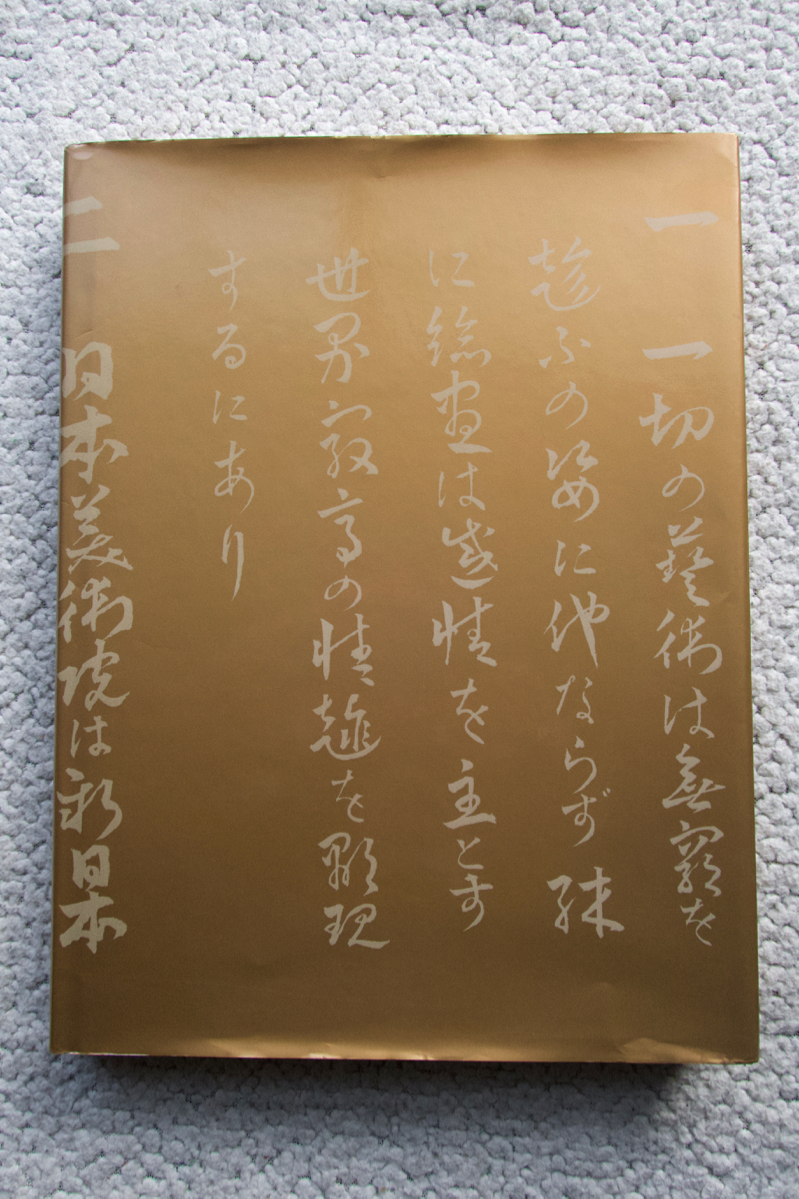 一 一切の藝術は無窮を
趁ふの姿に他ならず 殊
に繪畫は感情を主とす
世界最高の情趣を顯現
するにあり
二 日本美術院は新日本